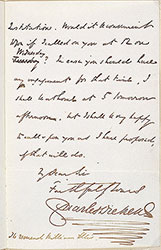 Institution. Would it be convenient
to you if I called on you at Shore
Wednesday
Thursday? In case you should have
any engagement for that time, I
shall be at home at 5 tomorrow
afternoon, but I shall be very happy
to call upon you as I have proposed,
if that will do.
My dear Sir
Faithfully Yours
Charles Dickens
The Reverend William